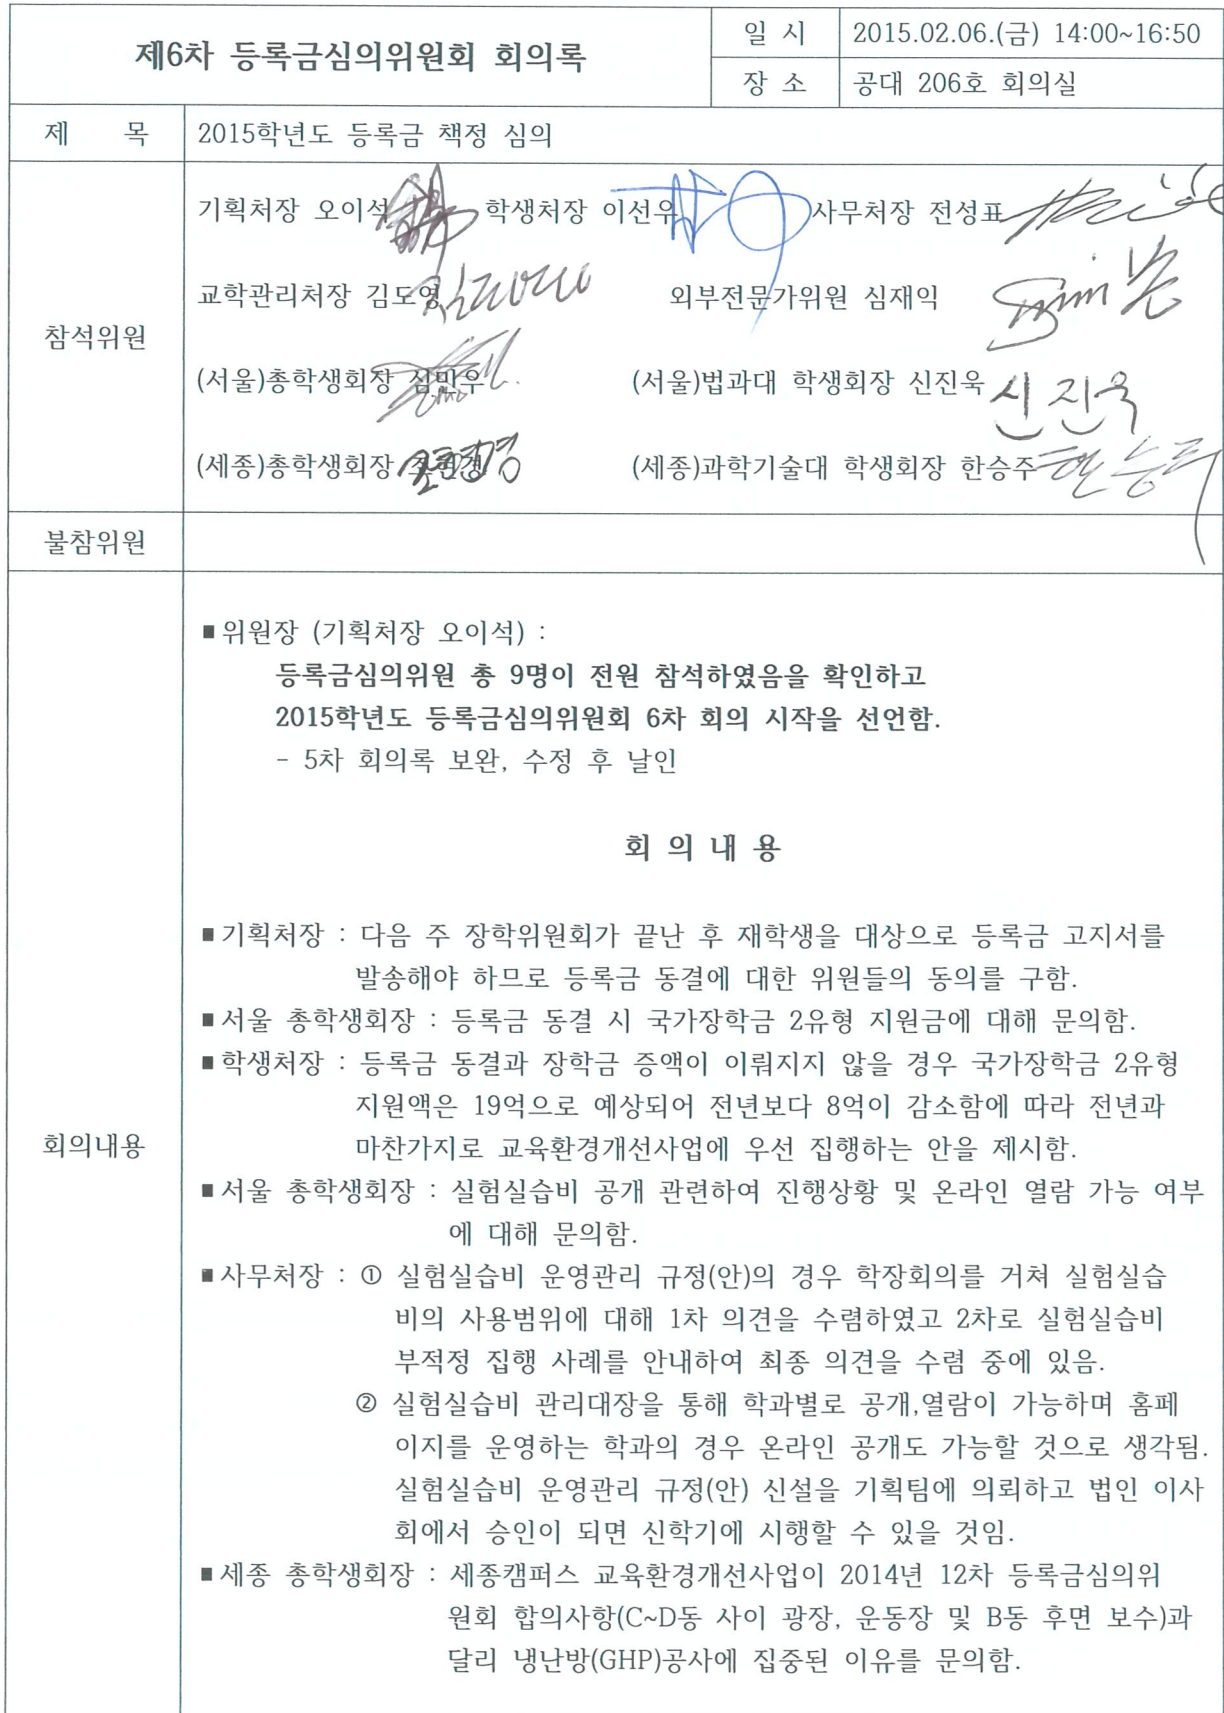 제6차 등록금심의위원회 회의록
일 시 2015.02.06.(금) 14:00~16:50
장 소 공대 206호 회의실
제 목 2015학년도 등록금 책정 심의
참석위원
기획처장 오이석 학생처장 이선우 사무처장 전성표
교학관리처장 김도영 외부전문가위원 심재익
(서울)총학생회장 (서울)법과대 학생회장 신진욱 신진욱
(세종)총학생회장 (세종)과학기술대 학생회장 한승주
불참위원
회의내용
■위원장 (기획처장 오이석) :
등록금심의위원 총 9명이 전원 참석하였음을 확인하고
2015학년도 등록금심의위원회 6차 회의 시작을 선언함.
- 5차 회의록 보완, 수정 후 날인
회 의 내 용
■기획처장 : 다음 주 장학위원회가 끝난 후 재학생을 대상으로 등록금 고지서를
발송해야 하므로 등록금 동결에 대한 위원들의 동의를 구함.
■서울 총학생회장 : 등록금 동결 시 국가장학금 2유형 지원금에 대해 문의함.
■학생처장 : 등록금 동결과 장학금 증액이 이뤄지지 않을 경우 국가장학금 2유형
지원액은 19억으로 예상되어 전년보다 8억이 감소함에 따라 전년과
마찬가지로 교육환경개선사업에 우선 집행하는 안을 제시함.
■서울 총학생회장 : 실험실습비 공개 관련하여 진행상황 및 온라인 열람 가능 여부
에 대해 문의함.
■사무처장 : ① 실험실습비 운영관리 규정(안)의 경우 학장회의를 거쳐 실험실습
비의 사용범위에 대해 1차 의견을 수렴하였고 2차로 실험실습비
부적정 집행 사례를 안내하여 최종 의견을 수렴 중에 있음.
② 실험실습비 관리대장을 통해 학과별로 공개,열람이 가능하며 홈페
이지를 운영하는 학과의 경우 온라인 공개도 가능할 것으로 생각됨.
실험실습비 운영관리 규정(안) 신설을 기획팀에 의뢰하고 법인 이사
회에서 승인이 되면 신학기에 시행할 수 있을 것임.
■세종 총학생회장 : 세종캠퍼스 교육환경개선사업이 2014년 12차 등록금심의위
원회 합의사항(C~D동 사이 광장, 운동장 및 B동 후면 보수)과
달리 냉난방(GHP)공사에 집중된 이유를 문의함.